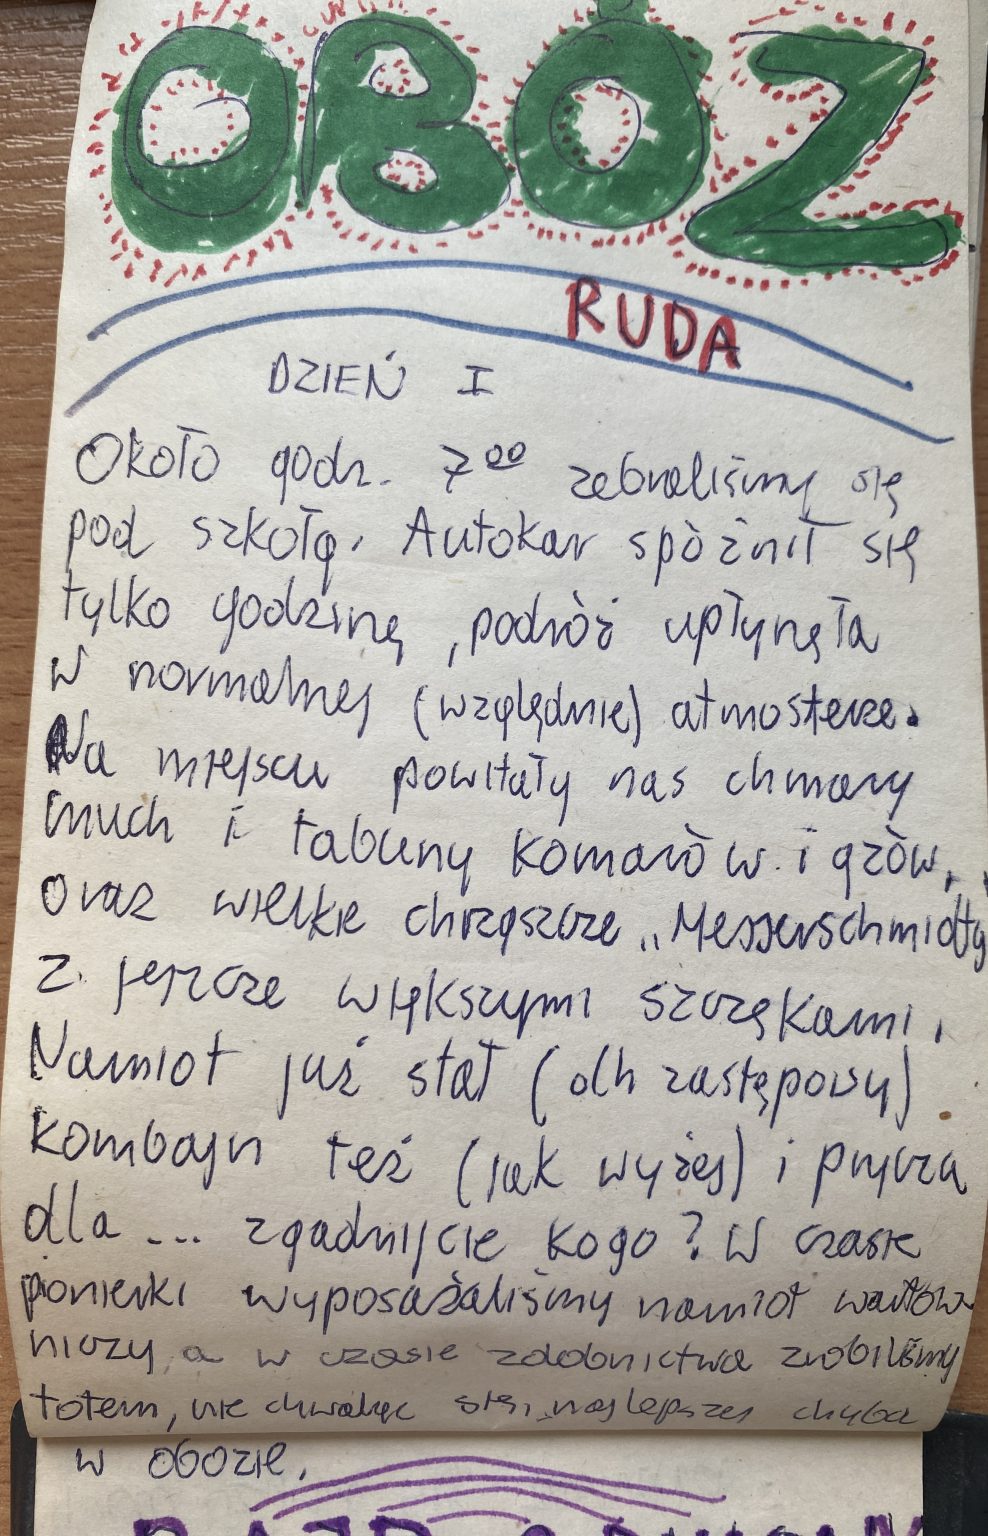 OBÓZ
RUDA
DZIEŃ I
Około godz. 7⁰⁰ zebraliśmy się
pod szkołą. Autokar spóźnił się
tylko godzinę, podróż upłynęła
w normalnej (względnie) atmosferze.
Na miejscu powitały nas chmary
much i tabuny komarów i gzów,
oraz wielkie chrząszcze „Messerschmidty
z jeszcze większymi szczękami.
Namiot już stał (dh zastępowy)
kombajn też (jak wyżej) i prycza
dla ... zgadnijcie kogo? W czasie
pionierki wyposażaliśmy namiot wartow-
niczy, a w czasie zdobnictwa zrobiliśmy
totem, nie chwaląc się, najlepszy chyba
w obozie.